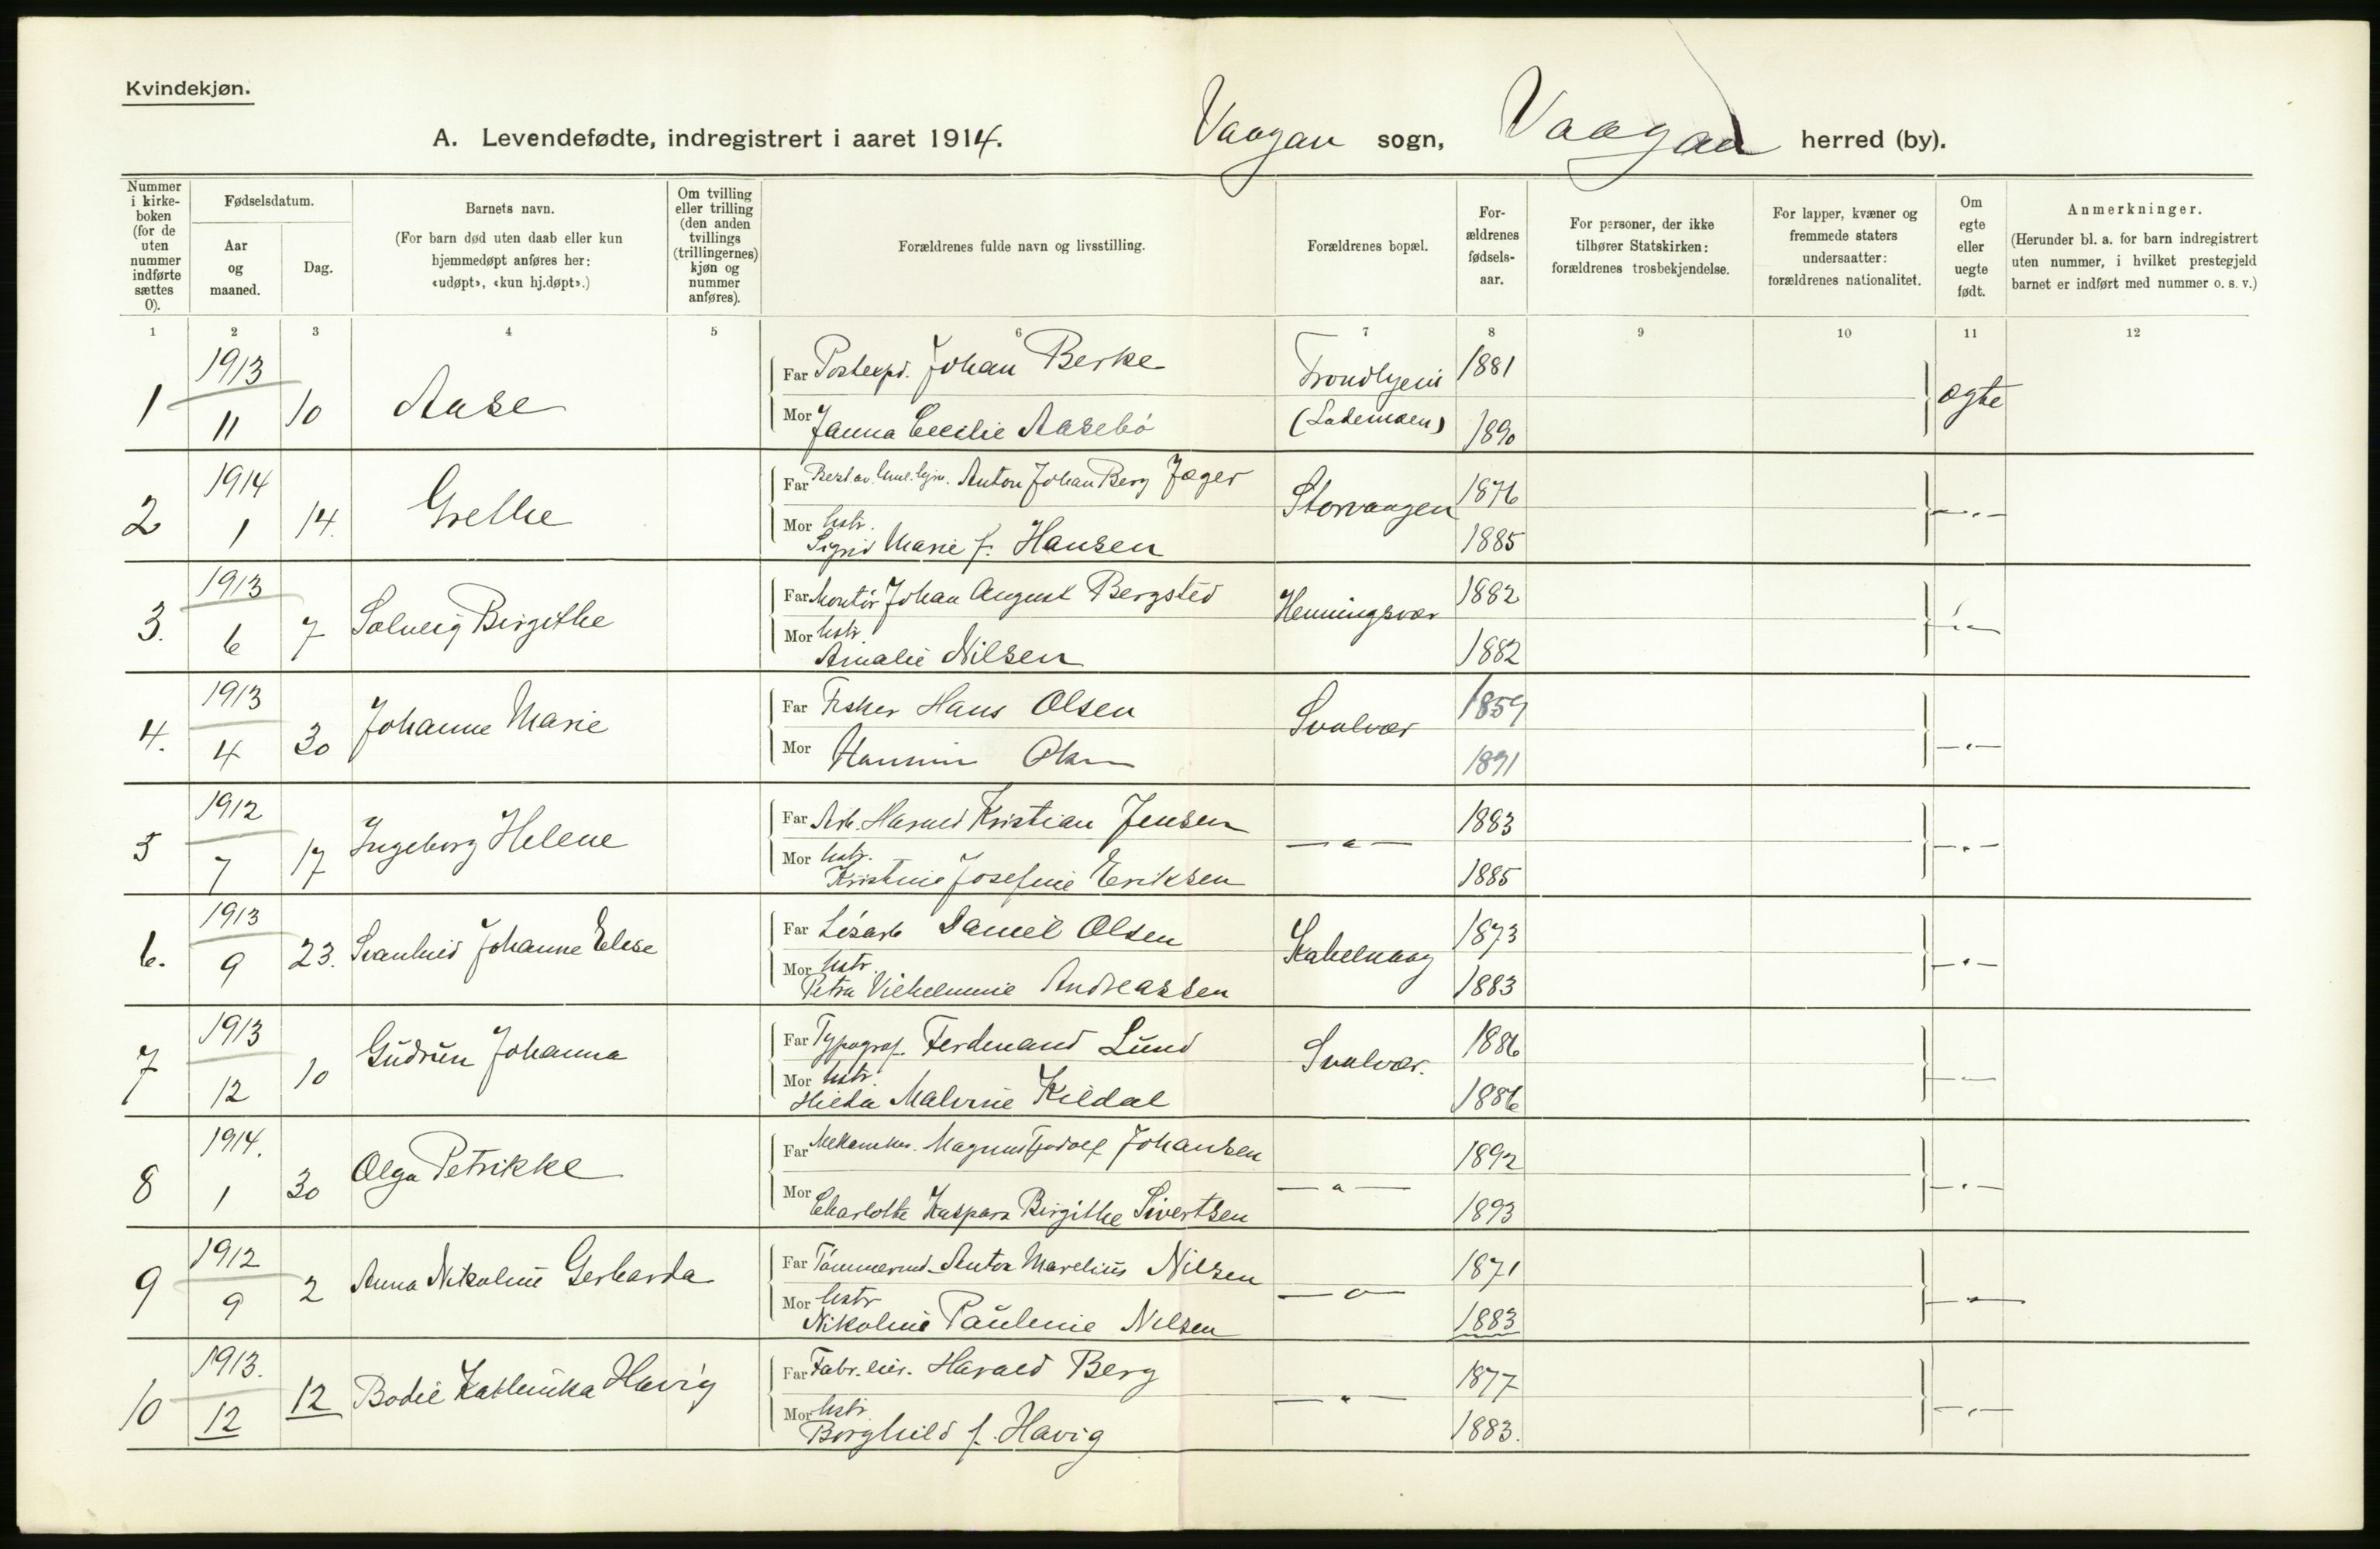 Kvindekjøn.
A. Levendefødte, indregistrert i aaret 1914. Vaagan sogn, Vaagan herred (by).
Nummer i kirke-boken (for de uten nummer indførte sættes 0).
Fødselsdatum.
Aar og maaned.
Dag.
Barnets navn.
(For barn død uten daab eller kun hjemmedøpt anføres her: «udøpt», «kun hj.døpt».)
Om tvilling eller trilling (den anden tvillings (trillingernes) kjøn og nummer anføres).
Forældrenes fulde navn og livsstilling.
Forældrenes bopæl.
For-ældrenes fødsels-aar.
For personer, der ikke tilhører Statskirken: forældrenes trosbekjendelse.
For lapper, kvæner og fremmede staters undersaatter: forældrenes nationalitet.
Om egte eller uegte født.
Anmerkninger.
(Herunder bl. a. for barn indregistrert uten nummer, i hvilket prestegjeld barnet er indført med nummer o. s. v.)
1 2 3 4 5 6 7 8 9 10 11 12
1 1913 11 10 Aase
Far Postexpd. Johan Berke Trondhjem 1881 ægte
Mor Janna Cecilie Aasebö (Lademoen) 1890
2 1914 1 14. Grethe
Far Anton Johan Berg Jæger Storvaagen 1876 —"—
Mor hstr. Sigrid Marie f. Hansen 1885
3. 1913 6 7 Solveig Birgithe
Far Montör Johan August Bergsted Henningsvær 1882 —"—
Mor hstr. Amalie Nilsen 1882
4. 1913 4 30 Johanne Marie
Far Fisker Hans Olsen Svolvær 1859 —"—
Mor Olsen 1891
5 1912 7 17 Ingeborg Helene
Far Arb. Harald Kristian Jensen —"— 1883 —"—
Mor hstr. Kristine Josefine Eriksen 1885
6. 1913 9 23. Svanhild Johanne Elise
Far Lösarb Daniel Olsen Kabelvaag 1873 —"—
Mor hstr. Petra Vilhelmine Andreassen 1883
7 1913 12 10 Gudrun Johanna
Far Typograf. Ferdinand Lund Svolvær. 1886 —"—
Mor hstr. Hilda Malvine Kildal 1886
8 1914. 1 30 Olga Petrikke
Far Mekaniker. Magnus Johansen —"— 1892 —"—
Mor Charlotte Kaspara Birgithe Sivertsen 1893
9 1912 9 2 Anna Nikoline Gerharda
Far Tömmermd. Anton Marelius Nilsen —"— 1871 —"—
Mor hstr Nikoline Pauline Nilsen 1883
10 1913. 12 12 Bodil Kathinka Havig
Far Fabr. eier. Harald Berg —"— 1877 —"—
Mor hstr. Borghild f. Havig 1883.